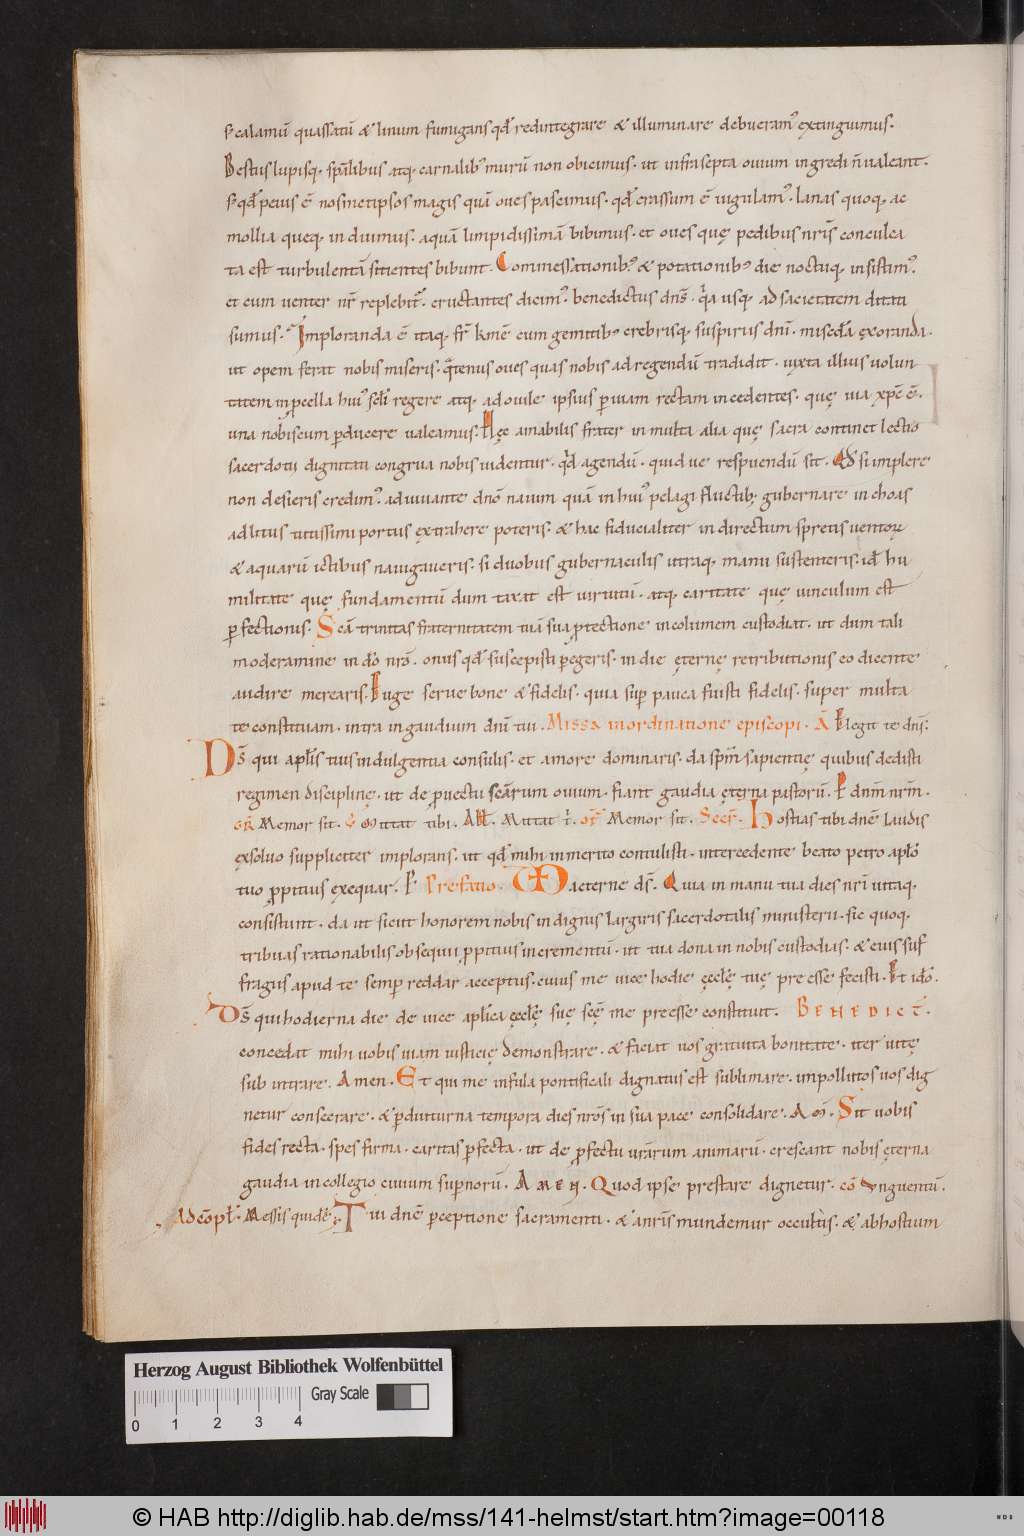 s; calamū quassatū & linum fumigans qđ redintegrare & illuminare debueram᾽ extinguimus.
Bestiis lupisq; spālibus atq; carnalib᾽ murū non obicimus. ut infra septa ouium ingredi ñ ualeant.
s; qđ peius ē nosmetipsos magis quā oues pascimus. qđ crassum ē iugulam᾽. lanas quoq; ac
mollia queq; induimus. aquā limpidissimā bibimus. et oues quę pedibus nr̄is conculca
ta est turbulentā sitientes bibunt. Commessationib᾽ & potationib᾽ die noctuq; insistim᾽.
et cum uenter nr̄ replebit᾽. eructantes dicim᾽. benedictus dn̄s. q̄a usq; ad sacietatem ditati
sumus. Imploranda ē itaq; fr̄ kmē cum gemitib᾽ crebrisq; suspiriis dn̄i. miscđia exoranda.
ut opem ferat nobis miseris. q̄tenus oues quas nobis ad regendū tradidit. iuxta illius uolun
tatem in pcella hui᾽ scli regere atq; ad ouile ipsius p uiam rectam incedentes. quę uia xp̄c ē.
una nobiscum pducere ualeamus. Hęc amabilis frater in multa alia quę sacra continet lectio
sacerdotii dignitati congrua nobis uidentur. q̄d agendū. quid ue respuendū sit. Qđ si implere
non desieris credim᾽. adiuuante dnō nauim quā in hui᾽ pelagi fluctib; gubernare inchoas
ad litus tutissimi portus extrahere poteris. & hac fiducialiter in directum spretis uentoꝝ
& aquarū ictibus nauigaueris. si duobus gubernaculis utraq; manu sustenteris. id ē hu
militate quę fundamentū dum taxat est uirtutū. atq; caritate quę uinculum est
pfectionis. Scā trinitas fraternitatem tuā sua ptectione incolumem custodiat. ut dum tali
moderamine in dō nrō. onus qđ suscepisti pegeris. in die ęternę retributionis eo dicente
audire merearis. Euge serue bone & fidelis. quia sup pauca fuisti fidelis. super multa
te constituam. intra in gaudium dn̄i tui. Missa in ordinatione episcopi. A Elegit te dn̄s.
Ds̄ qui aplis tuis indulgentia consulis. et amore dominaris. da spm̄ sapientię quibus dedisti
regimen disciplinę. ut de puectu sc̄arum ouium. fiant gaudia ęterna pastorū. P dn̄m nr̄m.
GR̄ Memor sit. V Mittat tibi. All. Mittat t̄. of Memor sit. Secr̄. Hostias tibi dnē laudis
exsoluo suppliciter implorans. ut qđ mihi inmerito contulisti. intercedente beato petro aplō
tuo ppitius exequar. P Prefatio. VD aeterne ds̄. Quia in manu tua dies nr̄i uitaq;
consistunt. da ut sicut honorem nobis indignis largiris sacerdotalis ministerii. sic quoq;
tribuas rationabilis obsequii ppitius incrementū. ut tua dona in nobis custodias. & eius suf
fragiis apud te semp reddar acceptus. cuius me uice hodie ęcclę tuę preesse fecisti. Et idō.
Ds̄ qui hodierna die de uice aplica ęcclę suę scę me preesse constituit. BENEDICT̄.
concedat mihi uobis uiam iusticię demonstrare. & faciat uos gratuita bonitate. iter uitę
sub intrare. Amen. Et qui me infula pontificali dignatus est sublimare. inpollutos uos dig
netur consecrare. & p diuturna tempora dies nrōs in sua pace consolidare. Am̄. Sit uobis
fides recta. spes firma. caritas pfecta. ut de pfectu urārum animarū. crescant nobis ęterna
gaudia in collegio ciuium supnorū. Amen. Quod ipse prestare dignetur. cō Unguentū.
Ad cōpl̄. Messis quidē. Tui dnē pceptione sacramenti. & a nr̄is mundemur occultis. & ab hostium
Herzog August Bibliothek Wolfenbüttel
Gray Scale
0 1 2 3 4
© HAB http://diglib.hab.de/mss/141-helmst/start.htm?image=00118